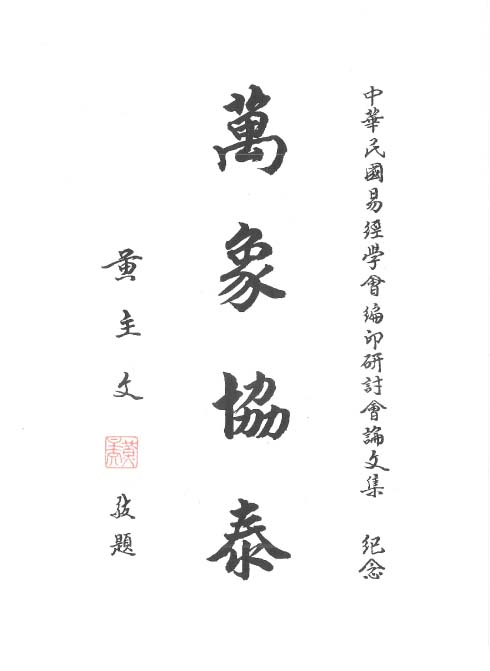 中華民國易經學會編印研討會論文集 紀念
萬象協泰
黃主文 敬題